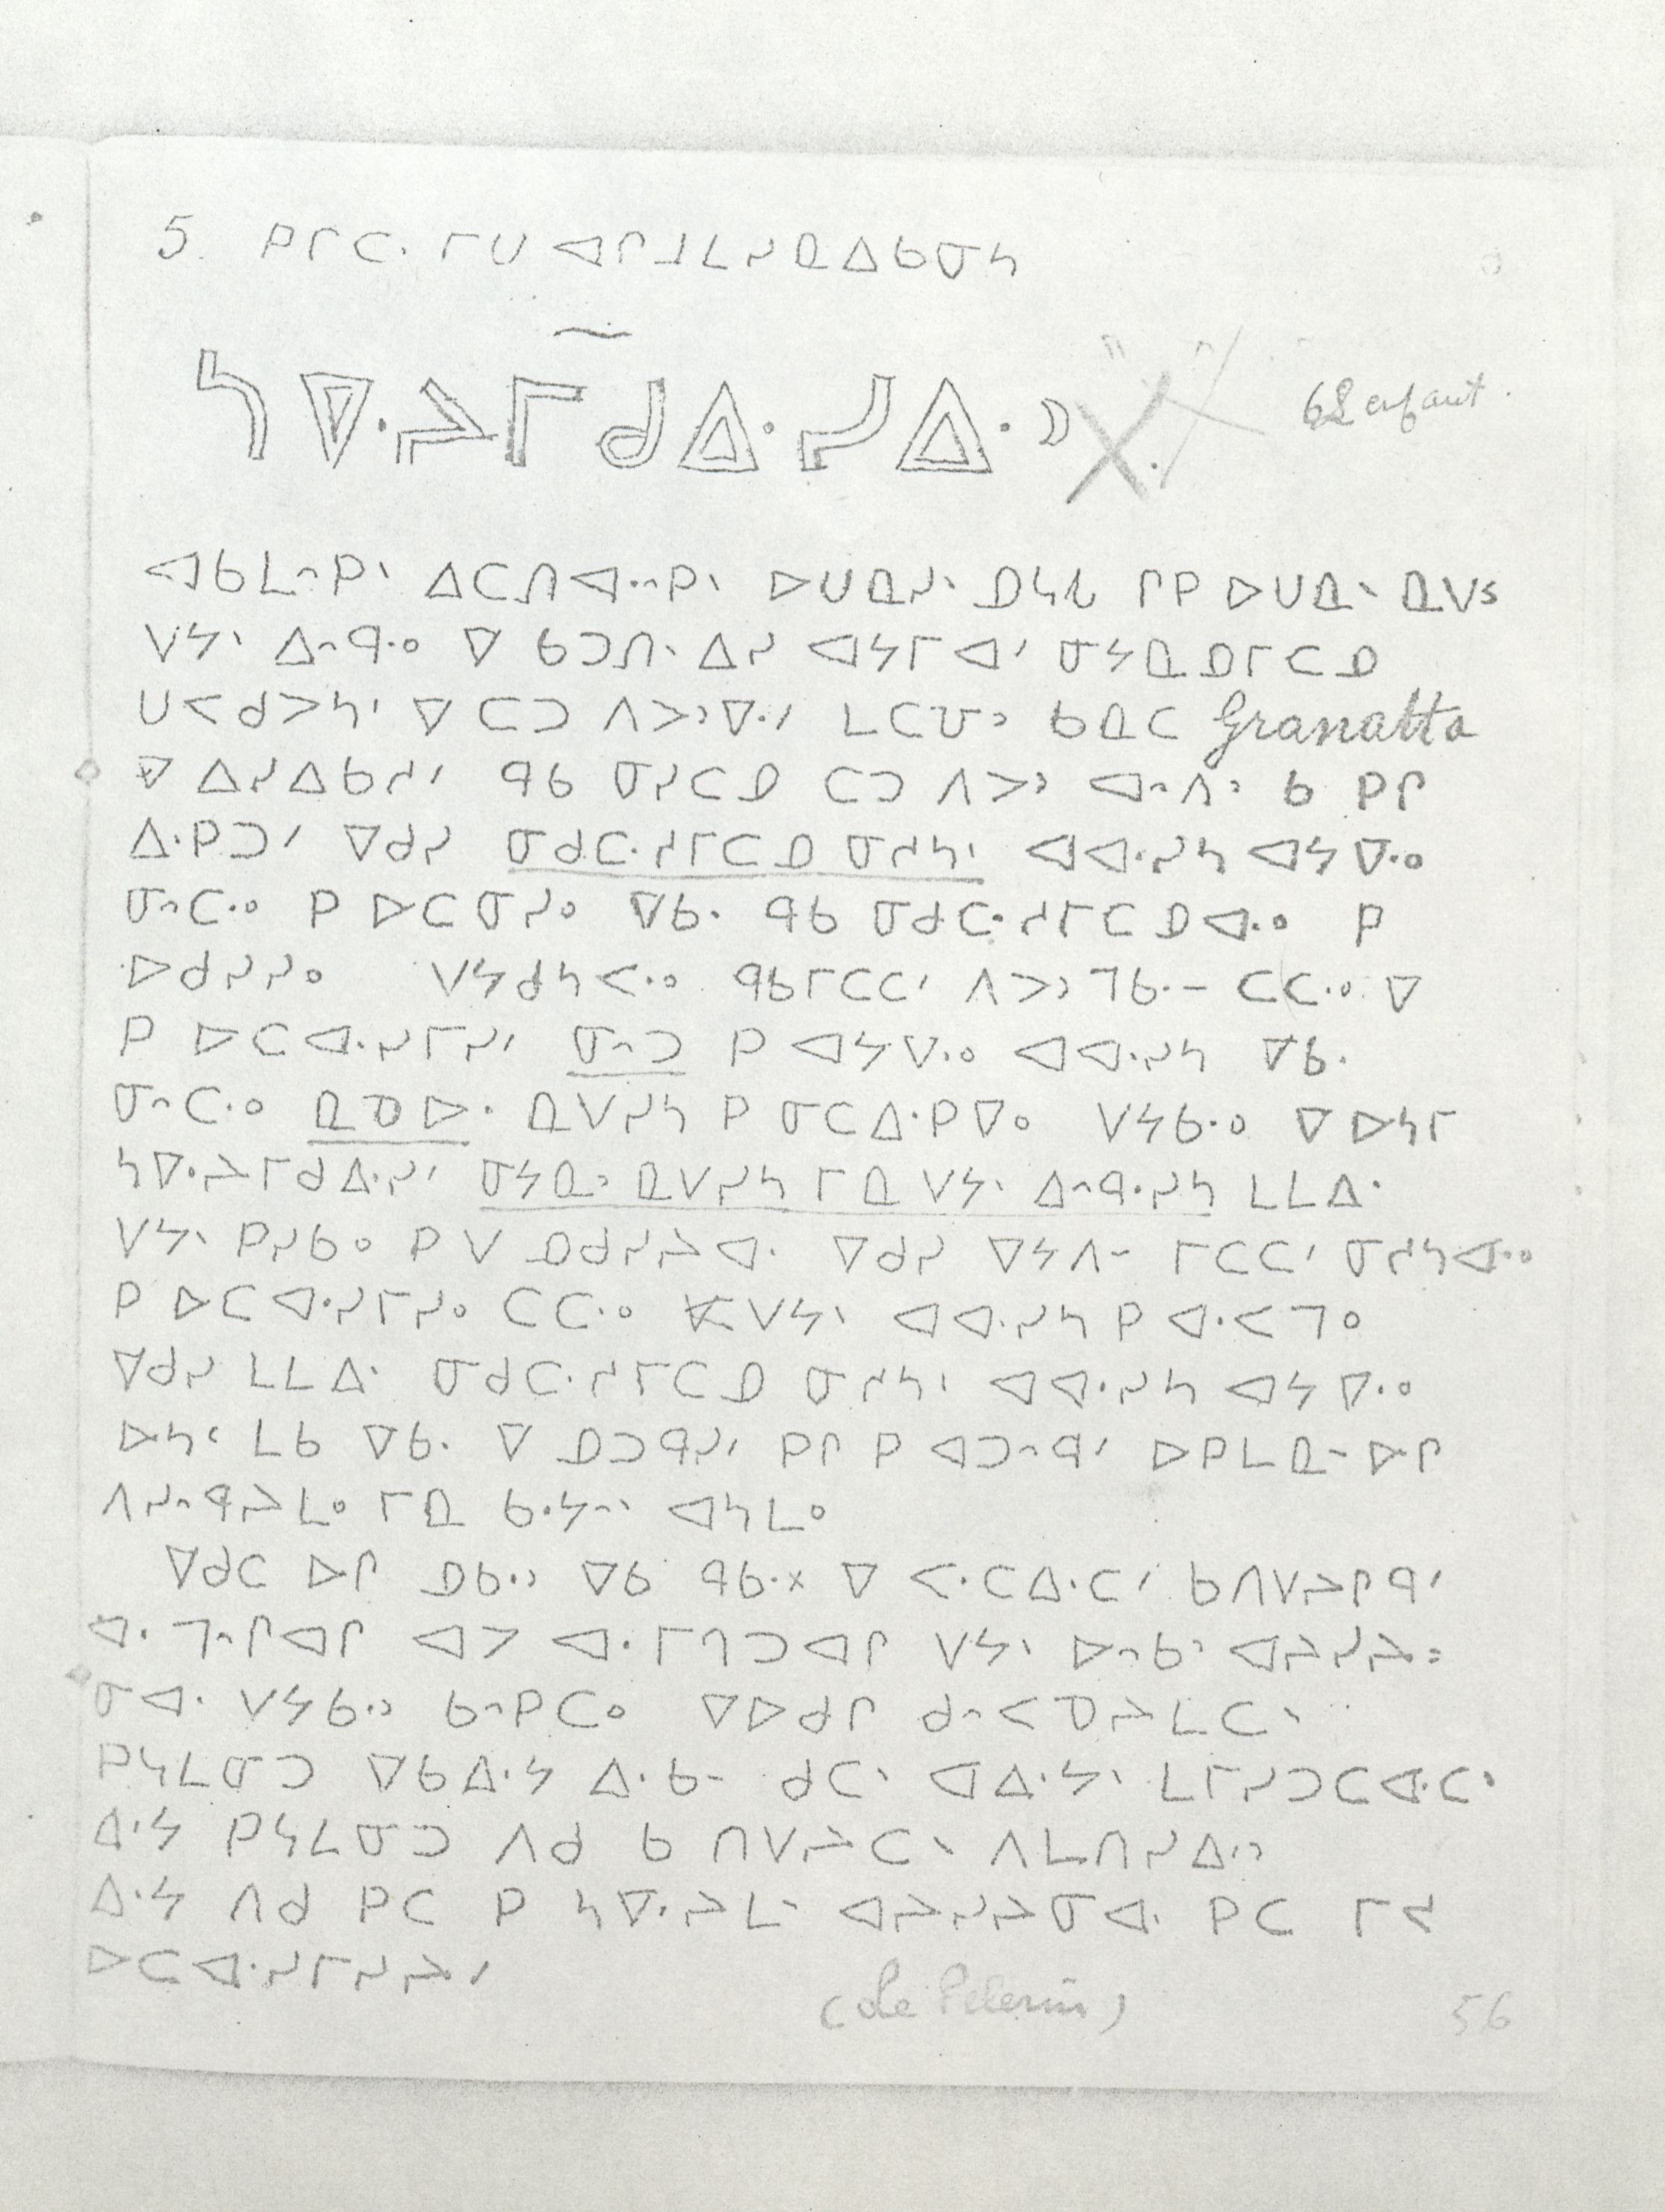 5. ᑭᒥᑕ· ᒥᑌ ᐊᒋᒧᒪᓯᓇᐃᑲᓂᓴ
ᓴᐁᐧᔨᒥᑯᐃᐧᓯᐃᐧᐣ
62 enfant.
ᐊᑲᒪᐢᑭᐠ ᐃᑕᑎᐊᐧᐢᑭᐠ ᐅᑌᓇᓯᐠ ᓄᓴᓭ ᒋᑭ ᐅᑌᓇᐠ ᓇᐯᔆ
ᐯᔭᐠ ᐃᐢᑫᐧᐤ ᐁ ᑲᑐᑎᐠ ᐃᓯ ᐊᔭᒥᐊᐟ ᓂᔭᓇᓄᒥᑕᓄ
ᑌᐸᑯᐳᓴᐟ ᐁ ᑕᑐ ᐱᐳᐣᐁᐧᐟ ᒪᑕᓀᐣ ᑲᓇᑕ Granatta
ᐁ ᐃᓯᐃᑲᓱᐟ ᑫᑲ ᓂᓯᑕᓄ ᑕᑐ ᐱᐳᐣ ᐊᐢᐱᐣ ᑲ ᑭᒋ
ᐃᐧᑭᑐᐟ ᐁᑯᓯ ᓂᑯᑕᐧᓱᒥᑕᓄ ᓂᓱᓴᐟ ᐊᐊᐧᓯᓴ ᐊᔭᐁᐧᐤ
ᓂᐢᑕᐧᐤ ᑭ ᐅᑕᓂᓯᐤ ᐁᑲᐧ ᑫᑲ ᓂᑯᑕᐧᓱᒥᑕᓄᐊᐧᐤ ᑭ
ᐅᑯᓯᓯᐤ ᐯᔭᑯᓴᐸᐧᐤ ᑫᑲᒥᑕᑕᐟ ᐱᐳᐣᒣᑲᐧᐨ ᑕᑕᐧᐤ ᐁ
ᑭ ᐅᑕᐊᐧᓯᒥᓯᐟ ᓂᐢᑐ ᑭ ᐊᔭᐁᐧᐤ ᐊᐊᐧᓯᓴ ᐁᑲᐧ
ᓂᐢᑕᐧᐤ ᓇᓀᐅᐧ ᓇᐯᓯᓴ ᑭ ᓂᑕᐃᐧᑭᐁᐤ ᐯᔭᑲᐧᐤ ᐁ ᐅᓴᒥ
ᓴᐁᐧᔨᒥᑯᐃᐧᓯᐟ ᓂᔭᓇᐣ ᓇᐯᓯᓴ ᒥᓇ ᐯᔭᐠ ᐃᐢᑫᐧᓯᓴ ᒪᒪᐃᐧ
ᐯᔭᐠ ᑭᓯᑲᐤ ᑭ ᐯ ᓄᑯᓯᔨᐊᐧ ᐁᑯᓯ ᐁᔭᐱᐨ ᒥᑕᑕᐟ ᓂᓱᓴᐊᐧᐤ
ᑭ ᐅᑕᐊᐧᓯᒥᓯᐤ ᑕᑕᐧᐤ ᐯᔭᐠ ᐊᐊᐧᓯᓴ ᑭ ᐊᐧᐸᒣᐤ
ᐁᑯᓯ ᒪᒪᐃᐧ ᓂᑯᑕᐧᓱᒥᑕᓄ ᓂᓱᓴᐟ ᐊᐊᐧᓯᓴ ᐊᔭᐁᐧᐤ
ᐅᓴᒼ ᒪᑲ ᐁᑲᐧ ᐁ ᓄᑐᑫᓯᐟ ᑭᒋ ᑭ ᐊᑐᐢᑫᐟ ᐅᑭᒪᓇᐨ ᐅᒋ
ᐱᓯᐢᑫᔨᒪᐤ ᒥᓇ ᑲᐧᔭᐢᐠ ᐊᓴᒪᐤ
ᐁᑯᑕ ᐅᒋ ᓄᑲᐧᐣ ᐁᑲ ᑫᑲᐧᕽ ᐁ ᐸᐧᑕᐃᐧᑕᐟ ᑲᑎᐯᔨᒋᑫᐟ
ᐊᐧ ᒣᐢᒋᐊᒋ ᐊᐳ ᐊᐧ ᒥᒋᑐᐊᒋ ᐯᔭᐠ ᐅᐢᑲᐣ ᐊᔨᓯᔨ=
ᓂᐊᐧ ᐯᔭᑲᐧᐣ ᑲᐢᑭᑕᐤ ᐁᐅᑯᒋ ᑯᐢᐸᓀᔨᒪᑕᐠ
ᑭᓴᒪᓂᑐ ᐁᑲᐃᐧᔭ ᐃᐧᑲᐨ ᑯᑕᐠ ᐊᐃᐧᔭᐠ ᒪᒥᓯᑐᑕᐊᐧᑕᐠ
ᐃᐧᔭ ᑭᓴᒪᓂᑐ ᐱᑯ ᑲ ᑎᐯᔨᑕᐠ ᐱᒪᑎᓯᐃᐧᐣ
ᐃᐧᔭ ᐱᑯ ᑭᑕ ᑭ ᓴᐁᐧᔨᒪᐨ ᐊᔨᓯᔨᓂᐊᐧ ᑭᑕ ᒥᐸ
ᐅᑕᐊᐧᓯᒥᓯᔨᐟ
(Le Pelerin)
56